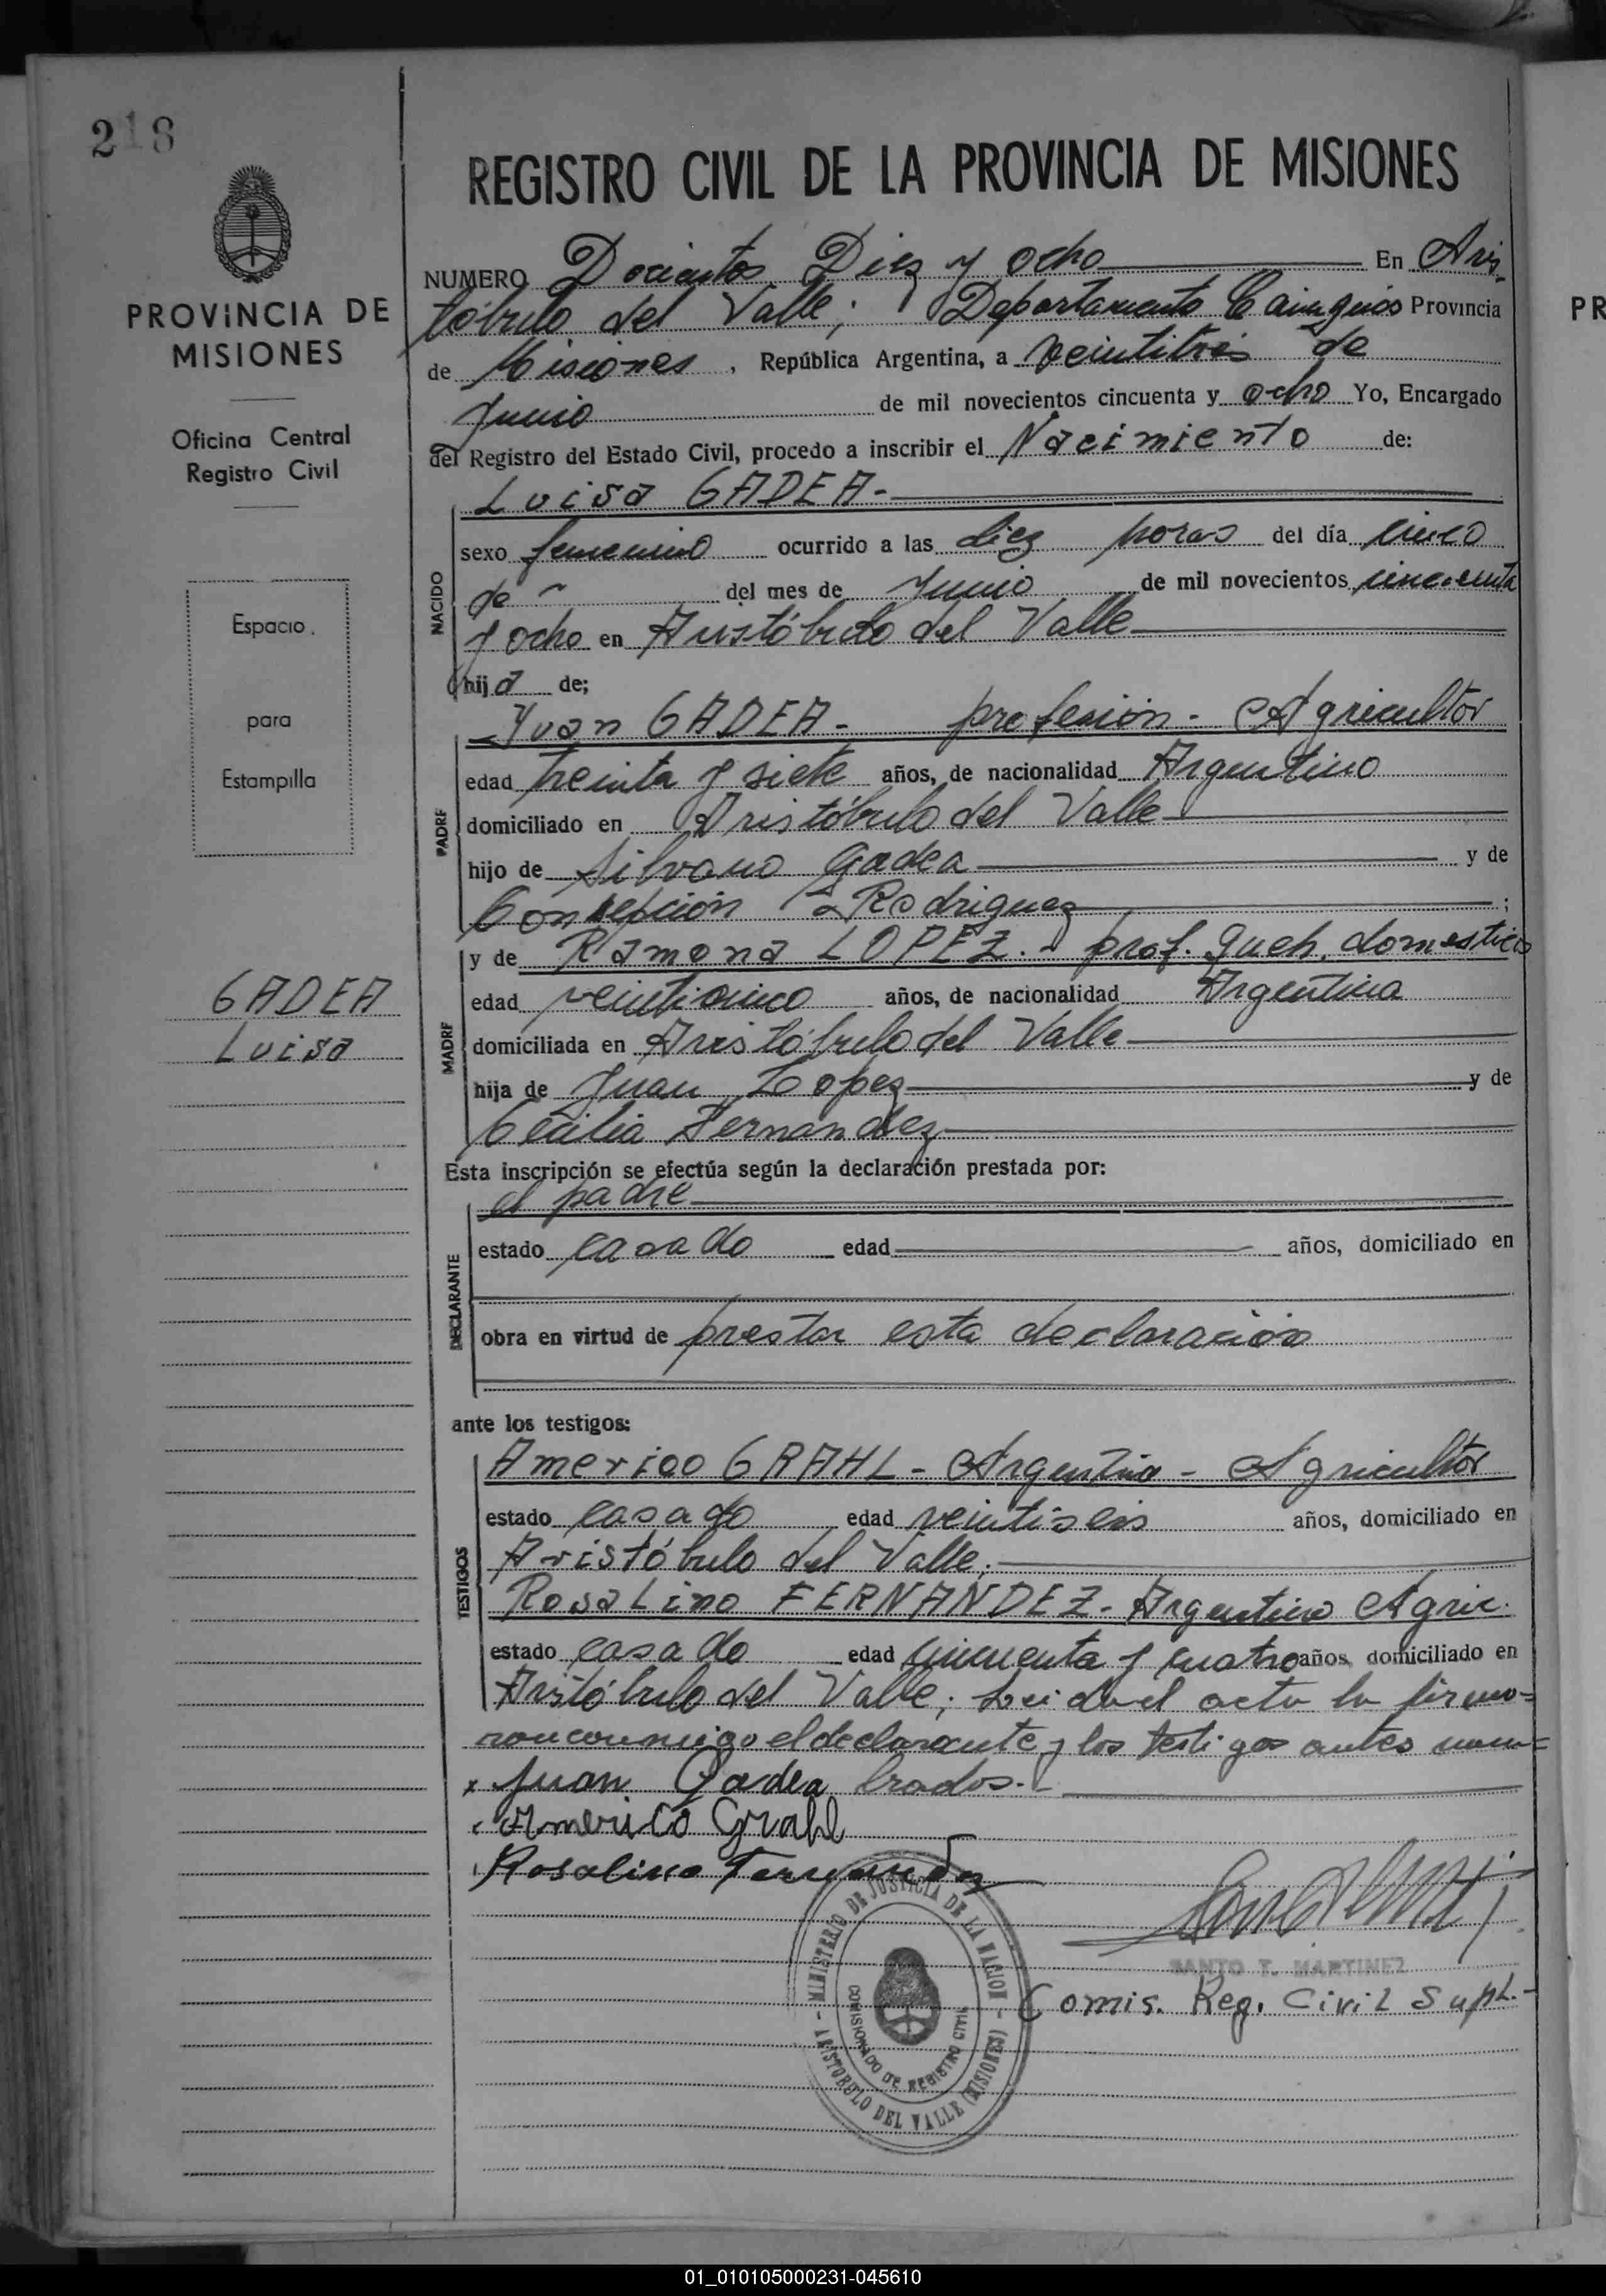 218
PROVINCIA DE
MISIONES
Oficina Central
Registro Civil
Espacio
para
Estampilla
GADEA
Luisa
REGISTRO CIVIL DE LA PROVINCIA DE MISIONES
NUMERO Docientos Diez y ocho En Aris-
tóbulo del Valle; Departamento Cainguás Provincia
de Misiones, República Argentina, a veintitrés de
Junio de mil novecientos cincuenta y ocho Yo, Encargado
del Registro del Estado Civil, procedo a inscribir el Nacimiento de:
NACIDO
Luisa GADEA-
sexo femenino ocurrido a las diez horas del día cinco
de del mes de Junio de mil novecientos cincuenta
y ocho en Aristóbulo del Valle
hija de;
PADRE
Juan GADEA- profesión- Agricultor
edad treinta y siete años, de nacionalidad Argentino
domiciliado en Aristóbulo del Valle
hijo de Silvano Gadea y de
Consepción Rodriguez;
MADRE
y de Ramona LOPEZ.- prof. queh. domesticos
edad veinticinco años, de nacionalidad Argentina
domiciliada en Aristóbulo del Valle
hija de Juan Lopez y de
Cecilia Fernandez
Esta inscripción se efectúa según la declaración prestada por:
DECLARANTE
el padre
estado casado edad años, domiciliado en
obra en virtud de prestar esta declaración
ante los testigos:
TESTIGOS
Americo GRAHL- Argentino- Agricultor
estado casado edad veintiseis años, domiciliado en
Aristóbulo del Valle.
Rosalino FERNANDEZ- Argentino Agric.
estado casado edad cincuenta y cuatro años domiciliado en
Aristóbulo del Valle; Leida el acta la firma-
ron conmigo el declarante y los testigos antes nom-
x Juan Gadea brados.-
Americo Grahl
Rosalino Fernandez
MINISTERIO DE JUSTICIA DE LA NACION - ARISTOBULO DEL VALLE (MISIONES)
COMISIONADO DE REGISTRO CIVIL
SANTO T. MARTINEZ
Comis. Reg. Civil Supl.-
PR
01_010105000231-045610